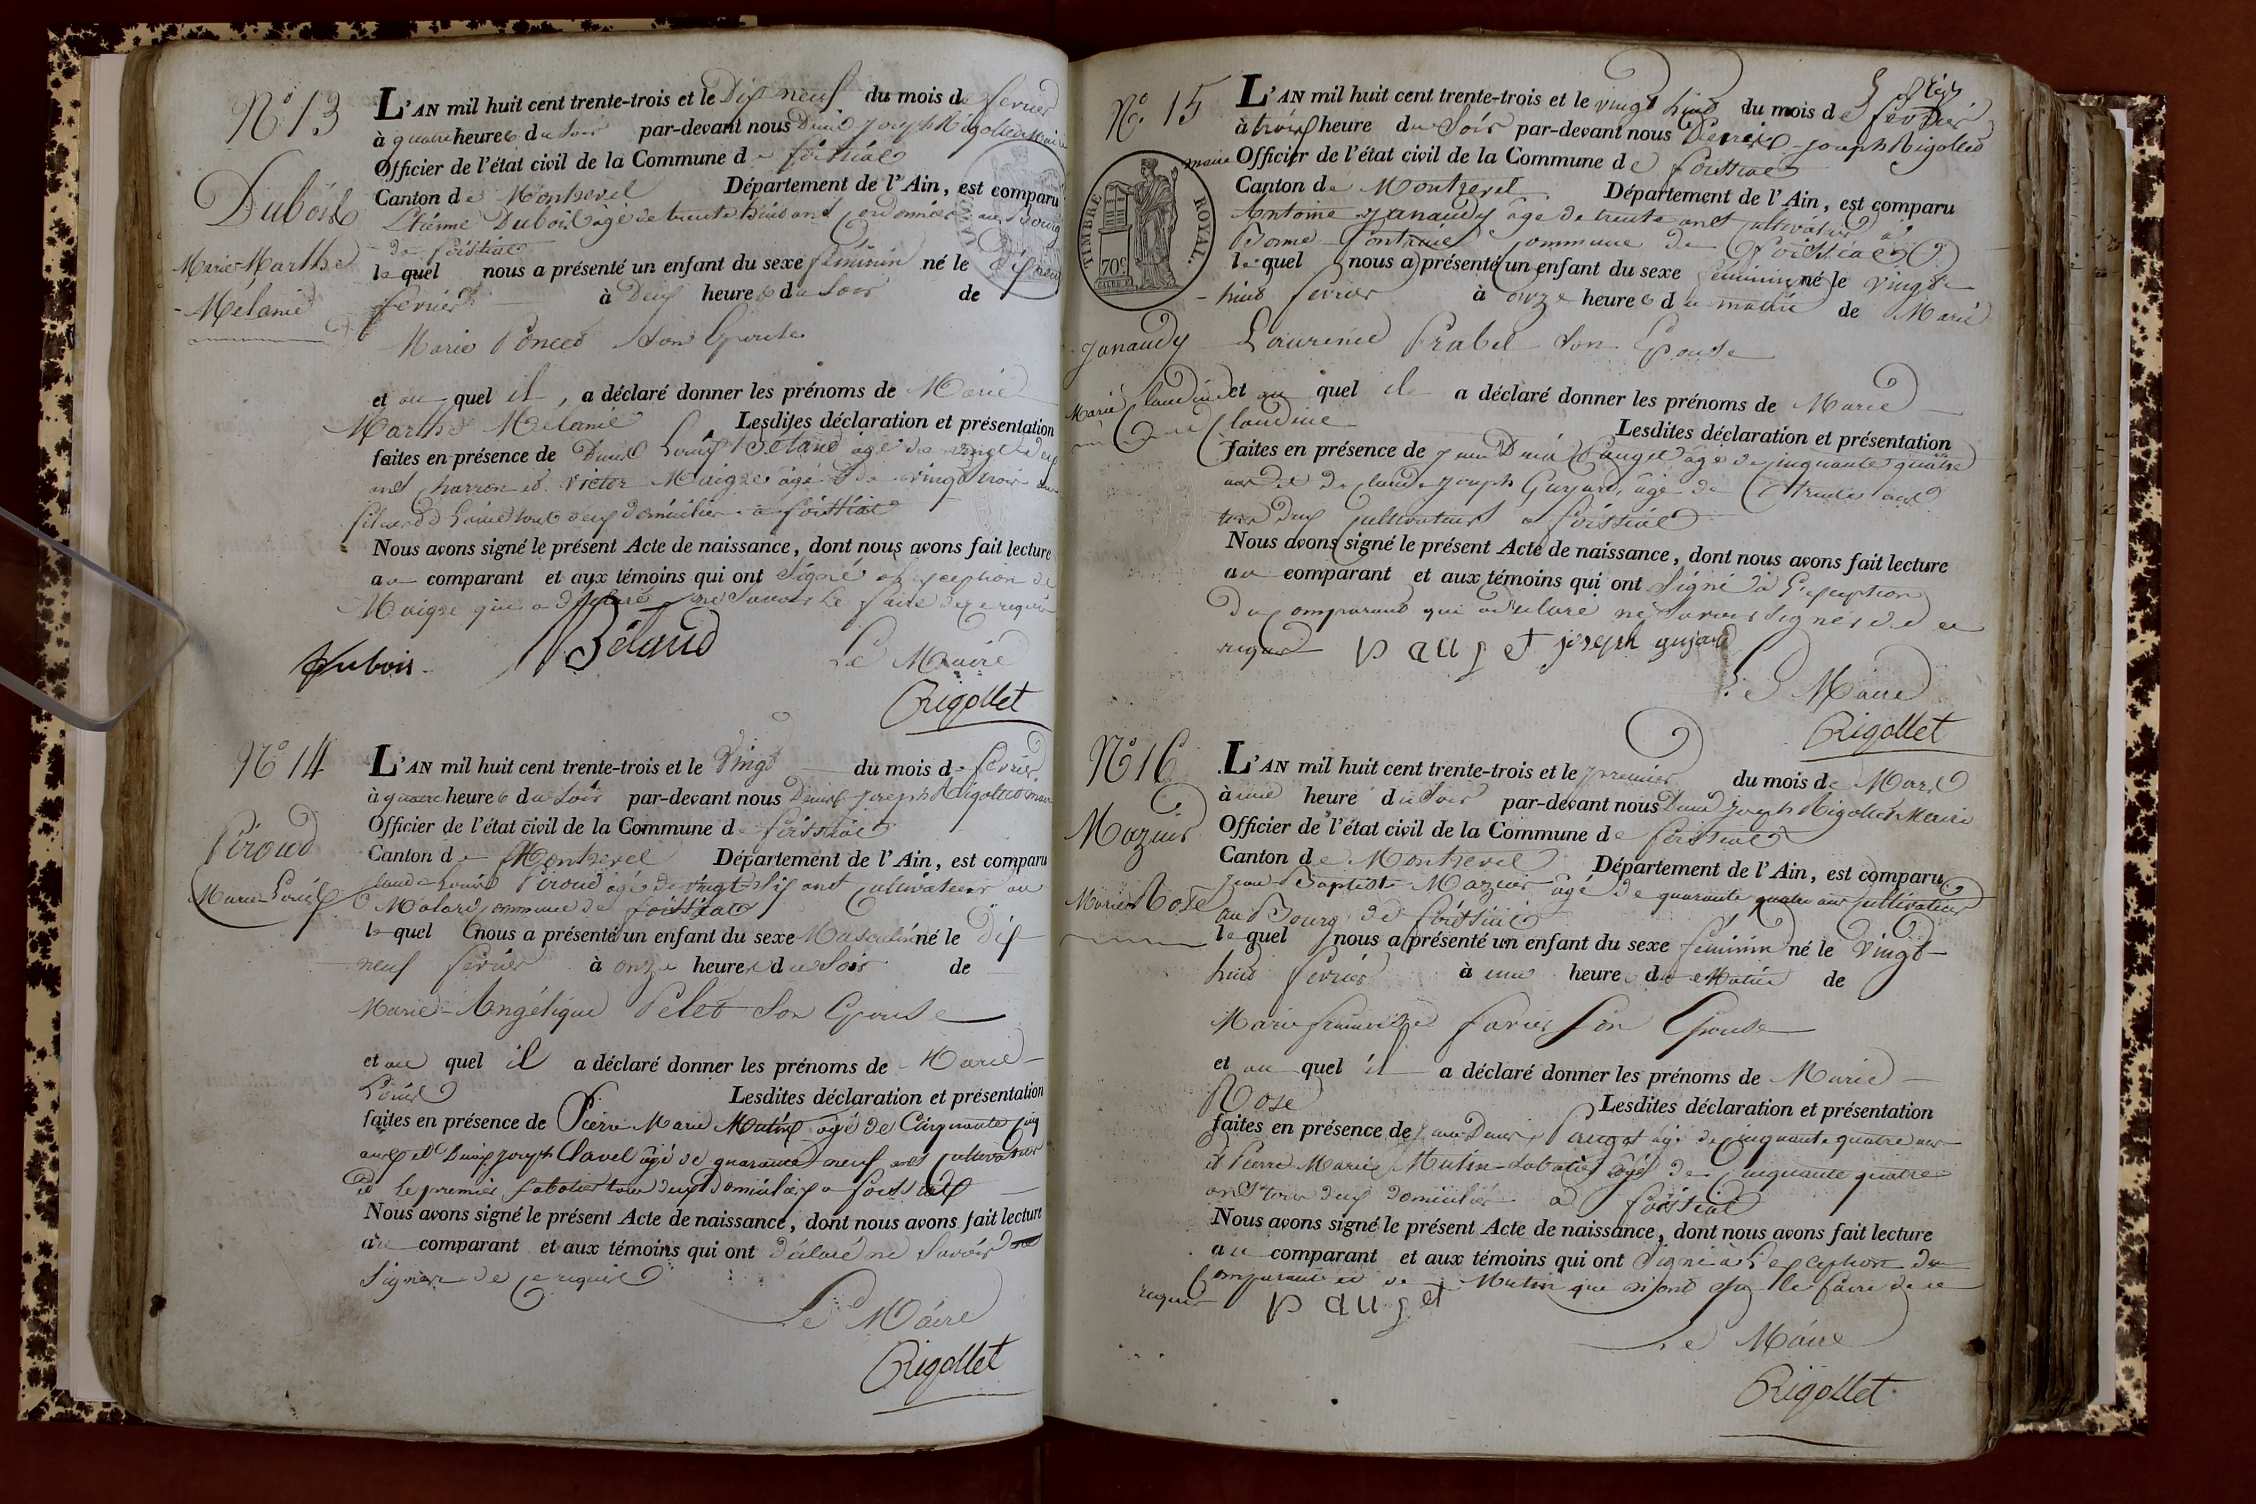 N° 13
Dubois
Marie Marthe
Mélanie
L'AN mil huit cent trente-trois et le Dix neuf du mois de fevrier
à quatre heures du Soir par-devant nous Denis Joseph Rigollet Maire
Officier de l'état civil de la Commune de foissiat
Canton de Montrevel Département de l'Ain, est comparu
Etienne Dubois âgé de trente huit ans Cordonnier au Bourg
de foissiat
lequel nous a présenté un enfant du sexe féminin né le dix neuf
fevrier à Deux heures du Soir de
Marie Poncet Son Epouse
et au quel il, a déclaré donner les prénoms de Marie
Marthe Mélanie Lesdites déclaration et présentation
faites en présence de Louis Bétaud âgé de vingt deux
ans charron et victor Maigre âgé de vingt trois ans
tous deux domiciliés à foissiat
Nous avons signé le présent Acte de naissance, dont nous avons fait lecture
au comparant et aux témoins qui ont Signé à l'exception de
Maigre qui a déclaré ne Savoir le faire de ce requis
Dubois Bétaud Le Maire
Rigollet
N° 14
Piroud
Marie Louis
L'AN mil huit cent trente-trois et le Vingt du mois de fevrier
à quatre heures du Soir par-devant nous Denis Joseph Rigollet maire
Officier de l'état civil de la Commune de foissiat
Canton de Montrevel Département de l'Ain, est comparu
Claude Louis Piroud âgé de vingt six ans Cultivateur au
Molard commune de foissiat
lequel nous a présenté un enfant du sexe Masculin né le Dix
neuf fevrier à onze heures du Soir de
Marie-Angélique Pelet Son Epouse
et au quel il a déclaré donner les prénoms de Marie
Louis Lesdites déclaration et présentation
faites en présence de Pierre Marie Mutin âgé de Cinquante cinq
ans et Denis Joseph Clavel âgé de quarante neuf ans Cultivateur
et le premier Sabotier tous deux domiciliés a foissiat
Nous avons signé le présent Acte de naissance, dont nous avons fait lecture
au comparant et aux témoins qui ont déclaré ne Savoir
Signer de ce requis
Le Maire
Rigollet
N° 15
TIMBRE ROYAL.
70c
Janaudy
Marie Claudine
L'AN mil huit cent trente-trois et le vingt huit du mois de fevrier
à trois heure du Soir par-devant nous Denis Joseph Rigollet
maire Officier de l'état civil de la Commune de foissiat
Canton de Montrevel Département de l'Ain, est comparu
Antoine Janaudy âgé de trente ans Cultivateur à
Bonne Fontaine Commune de Foissiat
lequel nous a présenté un enfant du sexe féminin né le vingt
huit fevrier à onze heures du matin de Marie
Laurence Prabel Son Epouse
et au quel il a déclaré donner les prénoms de Marie
Claudine Lesdites déclaration et présentation
faites en présence de Jean Denis Pauget âgé de cinquante quatre
ans et de Claude Joseph Guyard, âgé de trente ans
tous deux Cultivateurs a foissiat
Nous avons signé le présent Acte de naissance, dont nous avons fait lecture
au comparant et aux témoins qui ont Signé à l'exception
du Comparant qui a déclaré ne Savoir Signer de ce
requis pauget joseph guyard
Le Maire
Rigollet
N° 16
Mazuir
Marie Rose
L'AN mil huit cent trente-trois et le premier du mois de Mars
à une heure du Soir par-devant nous Denis Joseph Rigollet Maire
Officier de l'état civil de la Commune de foissiat
Canton de Montrevel Département de l'Ain, est comparu
Jean Baptiste Mazuir âgé de quarante quatre ans Cultivateur
au Bourg de foissiat
lequel nous a présenté un enfant du sexe féminin né le Vingt
huit fevrier à une heure du Matin de
Marie francoise favier Son Epouse
et au quel il a déclaré donner les prénoms de Marie
Rose Lesdites déclaration et présentation
faites en présence de Jean Denis Pauget âgé de cinquante quatre ans
et Pierre Marie Mutin Sabotier âgé de Cinquante quatre
ans tous deux domiciliés à foissiat
Nous avons signé le présent Acte de naissance, dont nous avons fait lecture
au comparant et aux témoins qui ont Signé à l'exception du
Comparant et de Mutin qui n'ont su le faire de ce
requis pauget
Le Maire
Rigollet